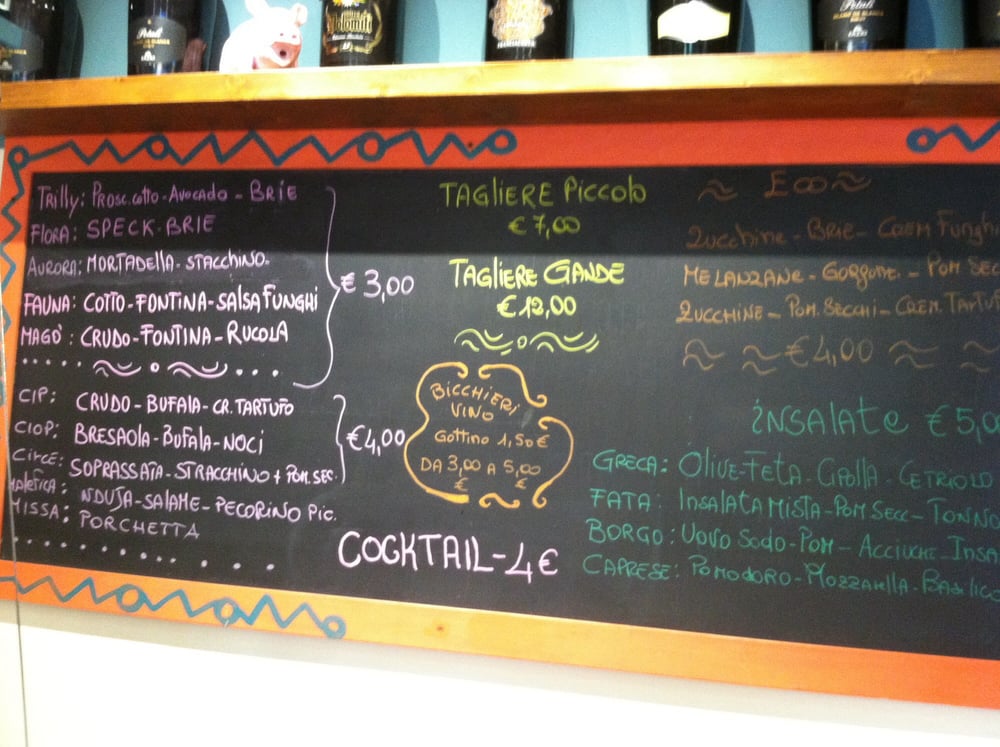 Petali
Dolomiti
Petali
Trilly: Prosc. cotto - Avocado - BRIE
FLORA: SPECK - BRIE
AURORA: MORTADELLA - STACCHINO -
FAUNA: COTTO - FONTINA - SALSA FUNGHI
MAGO': CRUDO - FONTINA - RUCOLA
€ 3,00
CIP: CRUDO - BUFALA - CR. TARTUFO
CIOP: BRESAOLA - BUFALA - NOCI
CIRCE: SOPRASSATA - STRACCHINO + POM. SEC.
MALEFICA: NDUJA - SALAME - PECORINO PIC.
MISSA: PORCHETTA
€4,00
TAGLIERE Piccolo
€ 7,00
TAGLIERE GANDE
€ 12,00
BICCHIERI
VINO
Gottino 1,50€
DA 3,00 A 5,00
€ €
COCKTAIL - 4€
Zucchine - BRIE - CREM Funghi
MELANZANE - GORGONZ. - POM SEC
ZUCCHINE - POM. SECCHI - CREM. TARTUF
€4,00
INSALATE €5,0
GRECA: OLIVE - FETA - CIPOLLA CETRIOLO
FATA: INSALATA MISTA - POM SECC - TONNO
BORGO: UOVO SODO - POM - ACCIUGHE - INSA
CAPRESE: POMODORO - MOZZARELLA - BASILICO